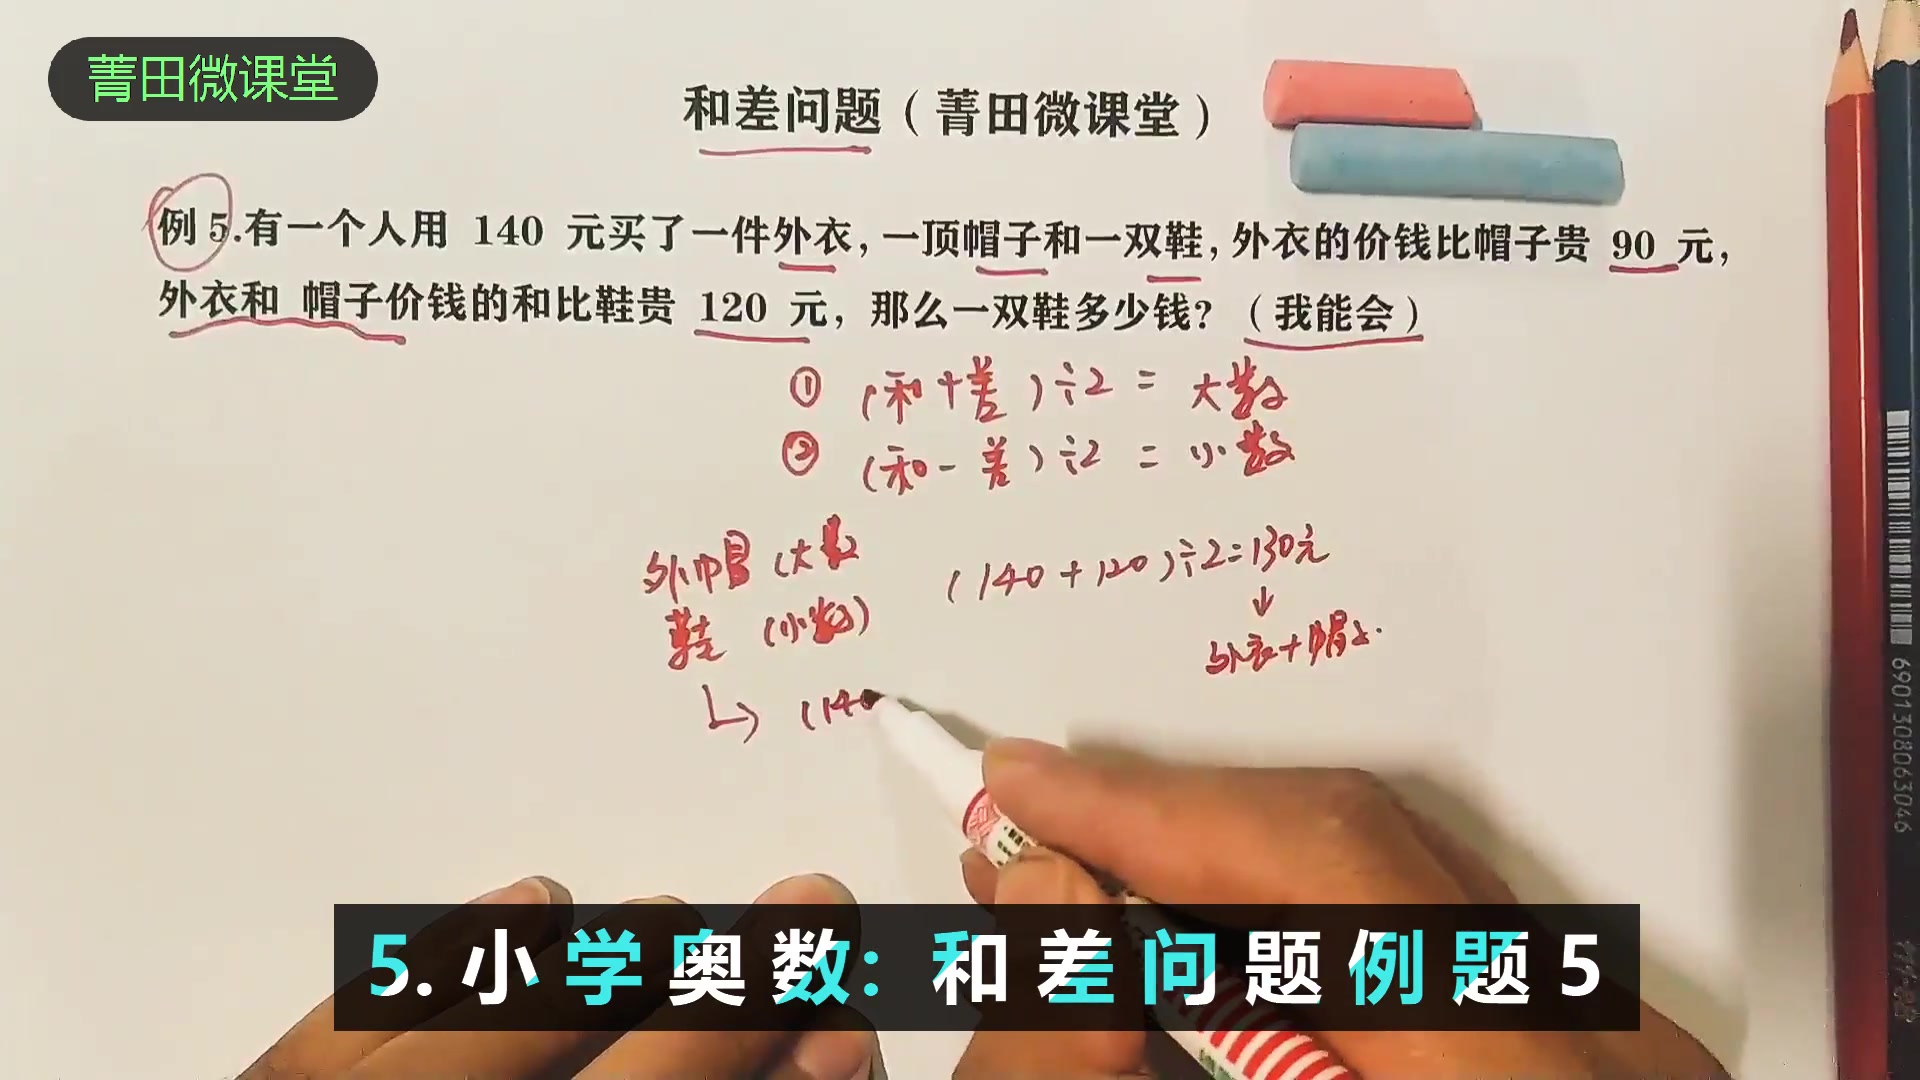 菁田微课堂
和差问题（菁田微课堂）
例5.有一个人用 140 元买了一件外衣，一顶帽子和一双鞋，外衣的价钱比帽子贵 90 元，
外衣和 帽子价钱的和比鞋贵 120 元，那么一双鞋多少钱？（我能会）
① (和+差)÷2 = 大数
② (和-差)÷2 = 小数
外帽 (大数
(140+120)÷2=130元
鞋 (小数)
外衣+帽子
(140
6901308063046
5.小学奥数:和差问题例题5